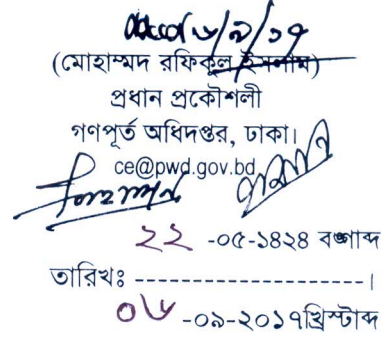 ৬/৯/১৭
(মোহাম্মদ রফিকুল ইসলাম)
প্রধান প্রকৌশলী
গণপূর্ত অধিদপ্তর, ঢাকা।
ce@pwd.gov.bd
২২ -০৫-১৪২৪ বঙ্গাব্দ
তারিখঃ ---------------------।
০৬ -০৯-২০১৭খ্রিস্টাব্দ